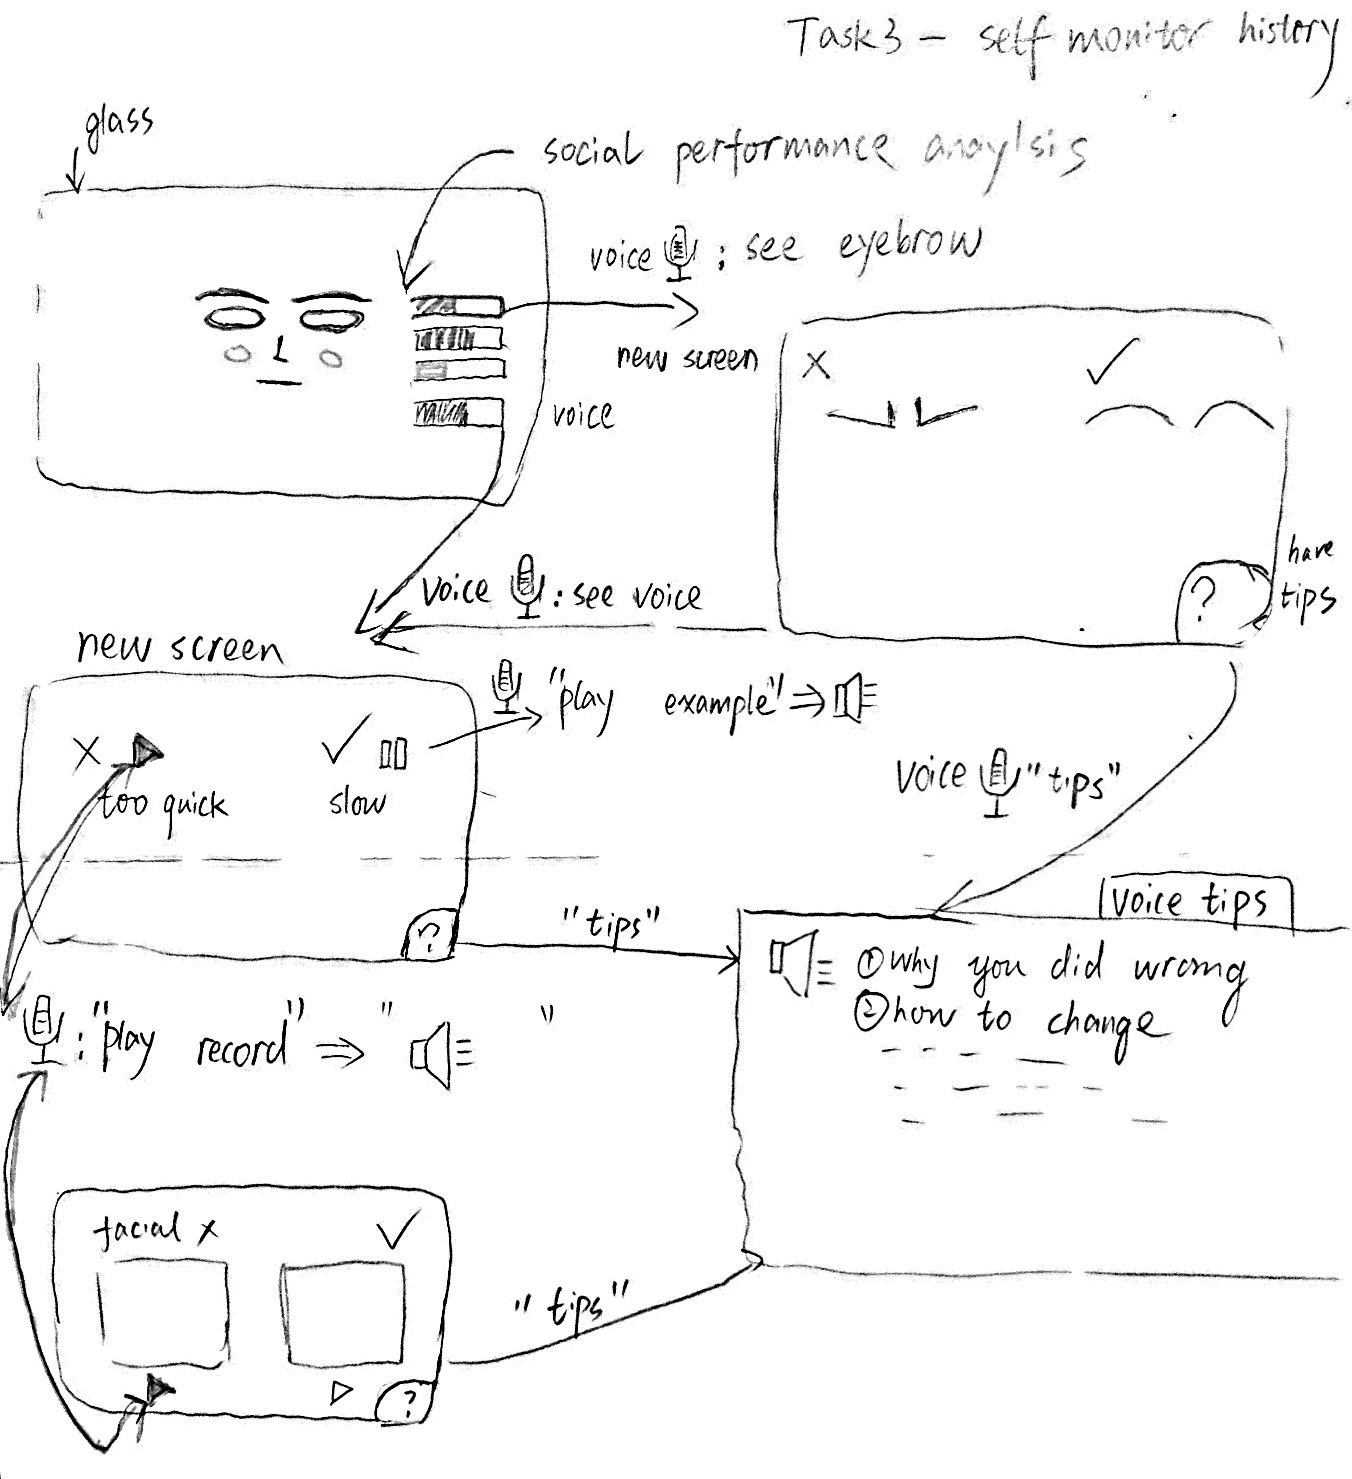 Task3 - self monitor history
glass
social performance anaylsis
voice : see eyebrow
new screen
voice
X ✓
have
tips
?
Voice : see voice
new screen
"play example" ⇒
X ✓
too quick slow
Voice "tips"
?
"tips"
Voice tips
① why you did wrong
② how to change
: "play record" ⇒ " "
facial x ✓
?
"tips"